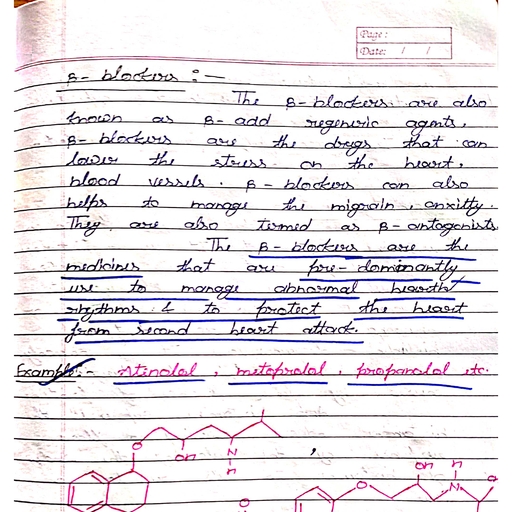 Page :
Date: / /
β- blockers :-
The β-blockers are also
known as β- add regeneric agents.
β-blockers are the drugs that can
lower the stress on the heart,
blood vessels. β-blockers can also
helps to manage the migrain, anxilty.
They are also termed as β-antogonists
The β-blockers are the
medicines that are pre-dominantly
use to manage abnormal hearth
rhythms & to protect the heart
from second heart attack.
Example:- Atinolol, metoprolol, propanolol etc.
O OH N H ,
O OH N H O
O